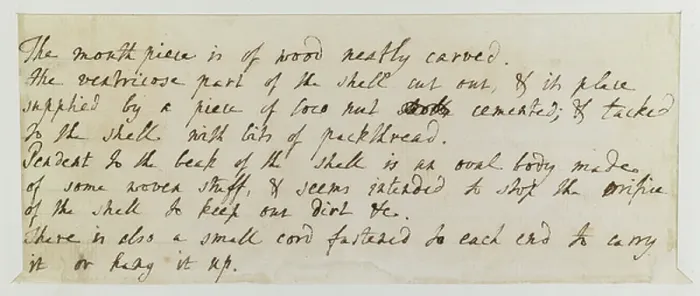 The mouth piece is of wood neatly carved.
the ventricose part of the shell cut out, & its place
supplied by a piece of Coco nut cemented; & tacked
to the shell with bits of packthread.
Pendent to the beak of the shell is an oval body made
of some woven stuff, & seems intended to stop the orifice
of the shell to keep out dirt &c.
There is also a small cord fastened to each end to carry
it or hang it up.